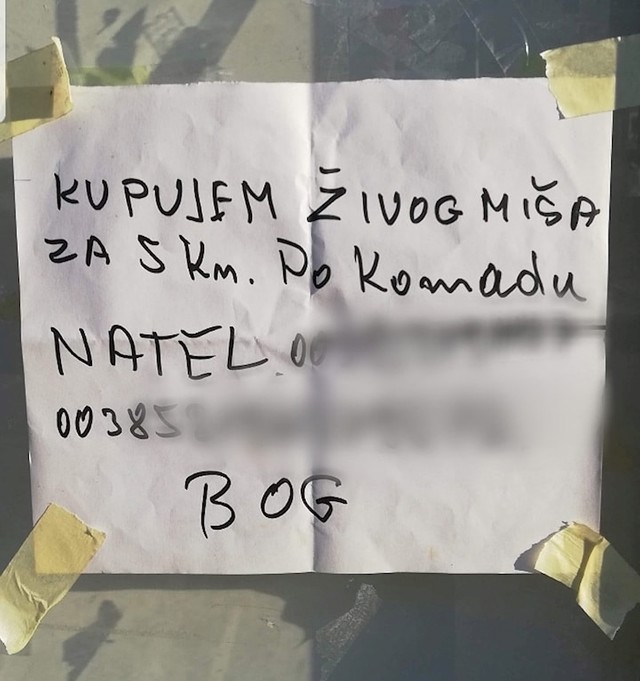 KUPUJEM ŽIVOG MIŠA
ZA 5 Km. Po Komadu
NATEL. 00
00385
BOG